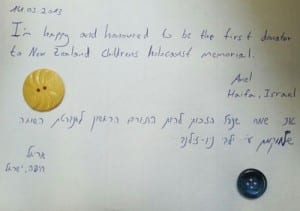 14.03.2013
I'm happy and honoured to be the first donator
to New Zealand childrens holocaust memorial.
Ariel
Haifa, Israel
אני שמח על הזכות להיות התורם הראשון למזכרת השואה
ע"י ילדי ניו-זילנד
אריאל
חיפה, ישראל